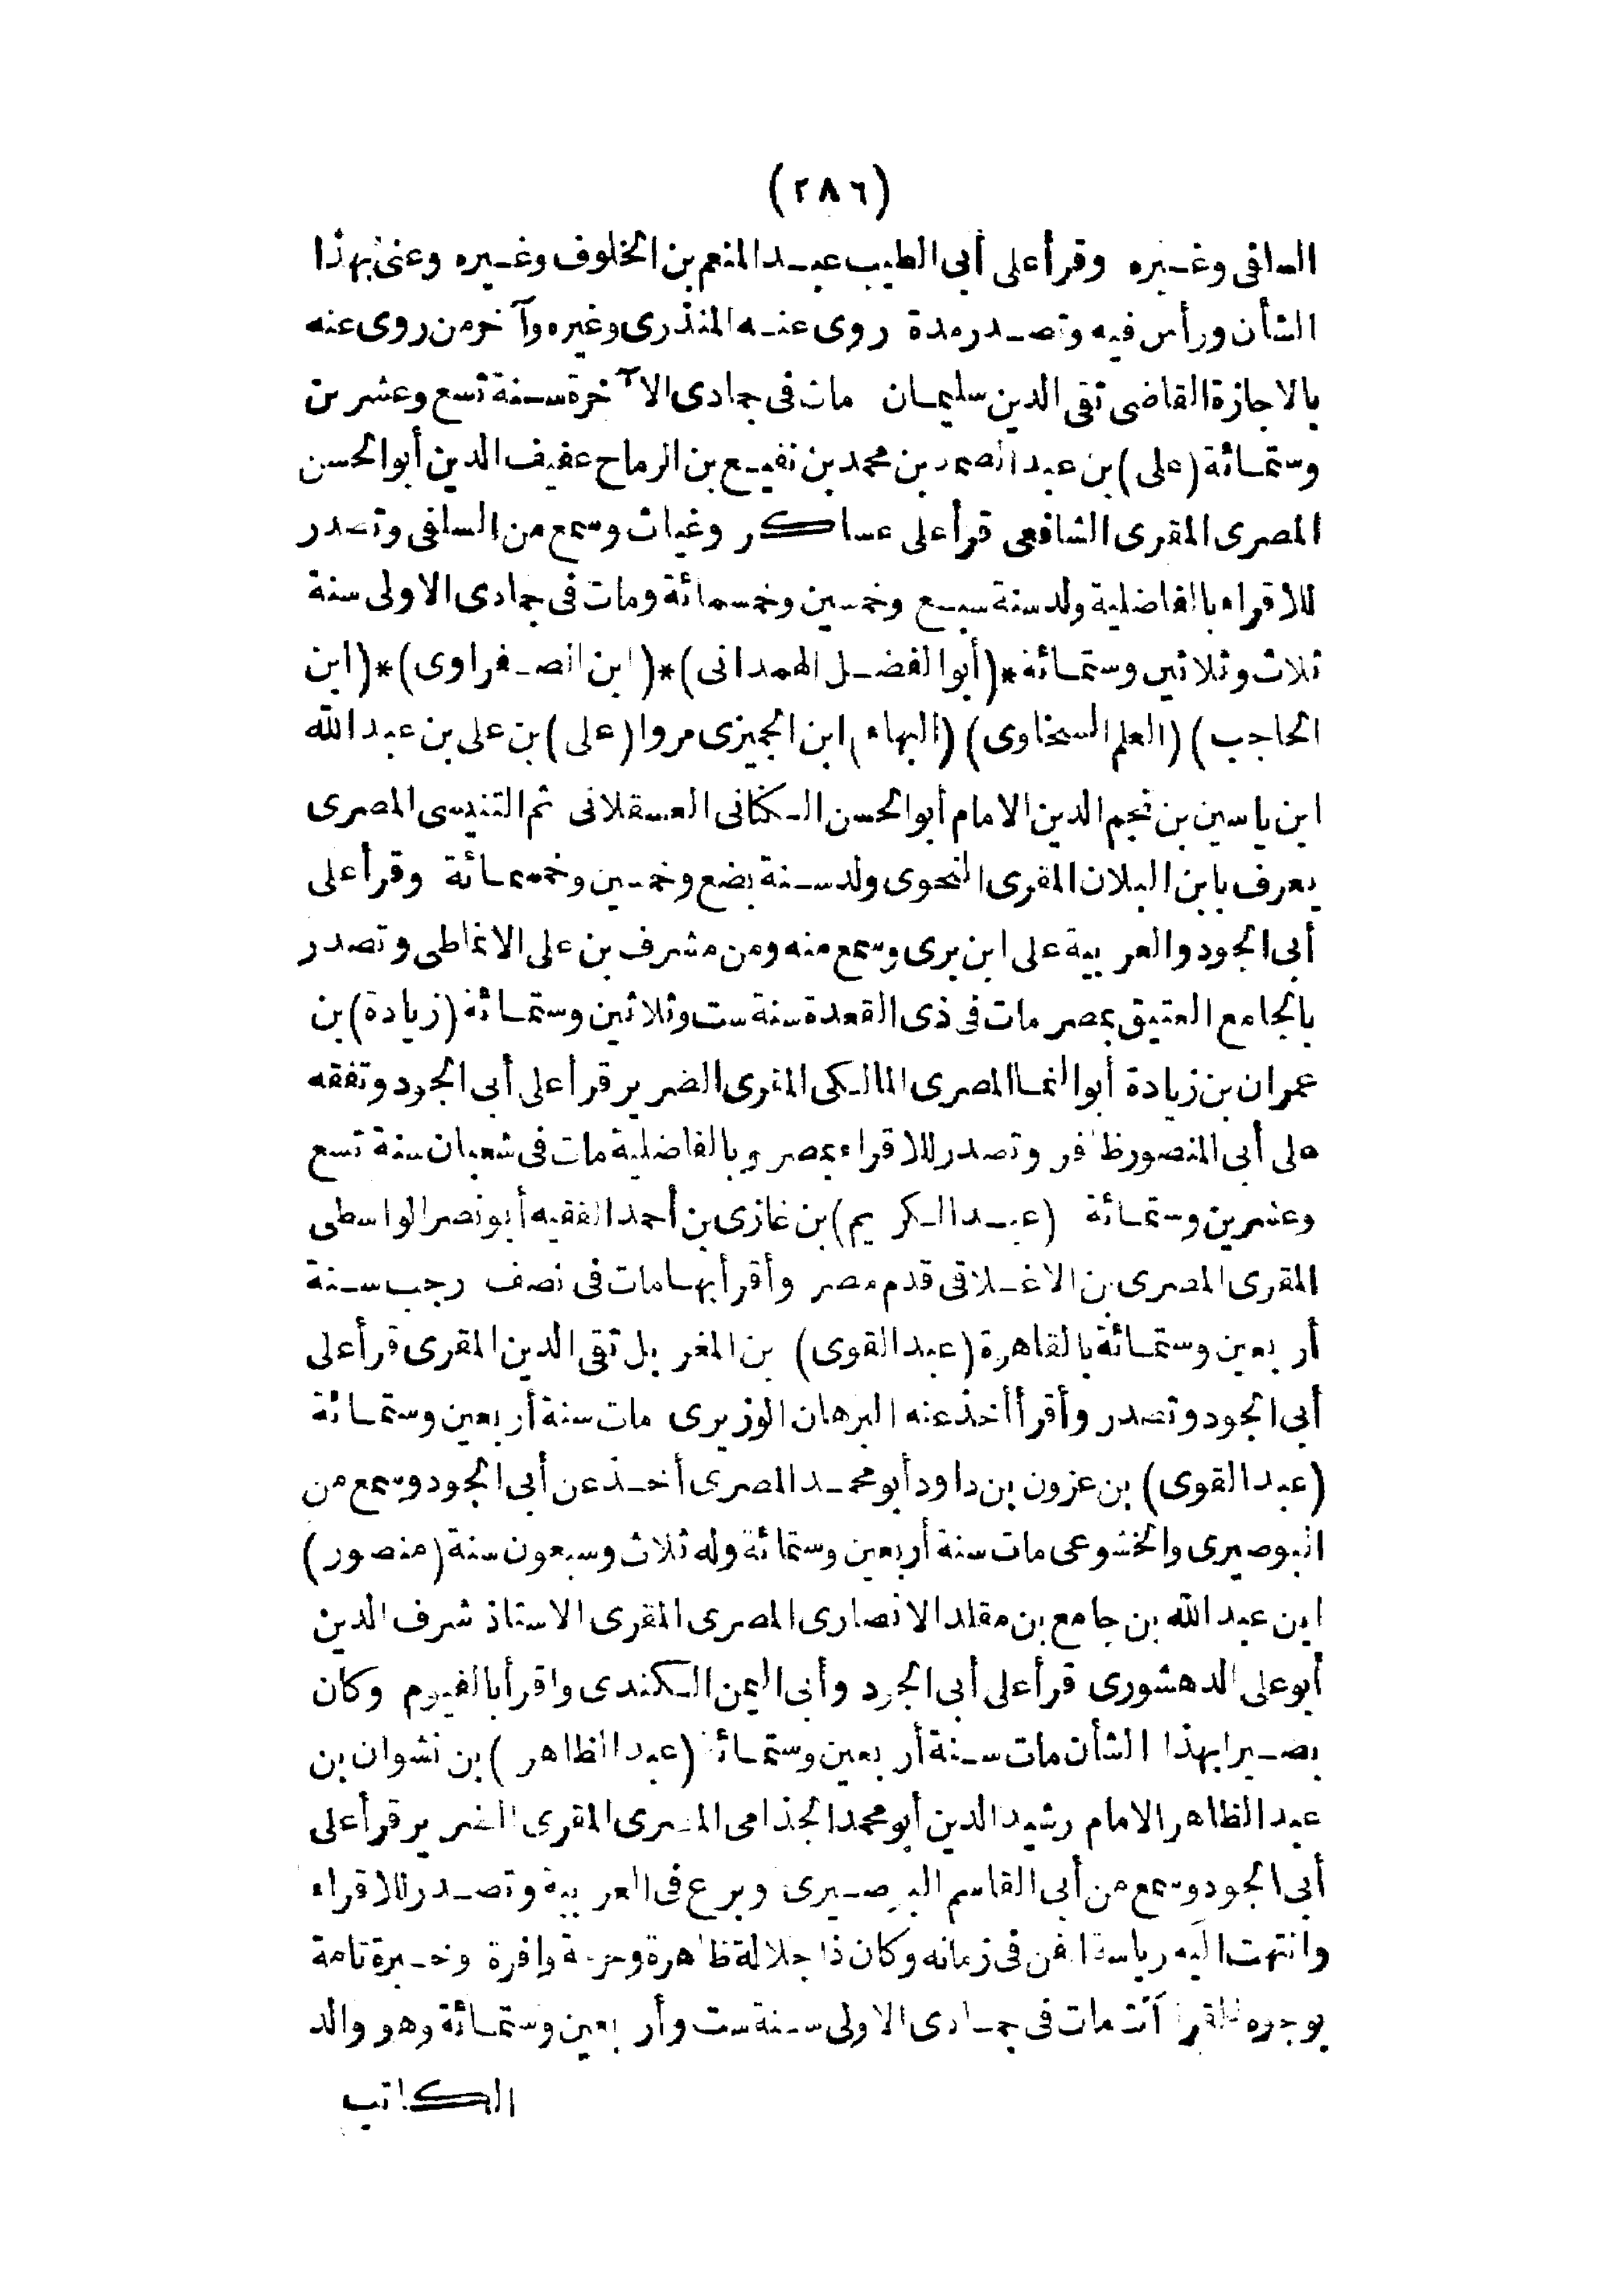 (٢٨٦)
السلفى وغيره وقرأ على أبى الطيب عبد المنعم بن الخلوف وغيره وعنى بهذا
الشأن ورأس فيه وتصدر مدة روى عنه المنذرى وغيره وآخر من روى عنه
بالاجازة القاضى تقى الدين سليمان مات فى جمادى الآخرة سنة تسع وعشرين
وستمائة (على) بن عبد الصمد بن محمد بن نفيع بن الرماح عفيف الدين أبو الحسن
المصرى المقرى الشافعى قرأ على عساكر وغياث وسمع من السلفى وتصدر
للاقراء بالفاضلية ولد سنة سبع وخمسين وخمسمائة ومات فى جمادى الاولى سنة
ثلاث وثلاثين وستمائة *(أبو الفضل الهمدانى)*(ابن الصفراوى)*(ابن
الحاجب) (العلم السخاوى) (البهاء) ابن الجميزى مروا (على) بن على بن عبد الله
ابن ياسين بن نجم الدين الامام أبو الحسن الكنانى العسقلانى ثم التنيسى المصرى
يعرف بابن البلان المقرى النحوى ولد سنة بضع وخمسين وخمسمائة وقرأ على
أبى الجود والعربية على ابن برى وسمع منه ومن مشرف بن على الانماطى وتصدر
بالجامع العتيق بمصر مات فى ذى القعدة سنة ست وثلاثين وستمائة (زيادة) بن
عمران بن زيادة أبو النما المصرى المالكى المقرى الضرير قرأ على أبى الجود وتفقه
على أبى المنصور ظافر وتصدر للاقراء بمصر وبالفاضلية مات فى شعبان سنة تسع
وعشرين وستمائة (عبد الكريم) بن غازى بن أحمد الفقيه أبو نصر الواسطى
المقرى المصرى بن الاغلاقى قدم مصر وأقرأ بها مات فى نصف رجب سنة
أربعين وستمائة بالقاهرة (عبد القوى) بن المغربل تقى الدين المقرى قرأ على
أبى الجود وتصدر وأقرأ أخذ عنه البرهان الوزيرى مات سنة أربعين وستمائة
(عبد القوى) بن عزون بن داود أبو محمد المصرى أخذ عن أبى الجود وسمع من
البوصيرى والخشوعى مات سنة أربعين وستمائة وله ثلاث وسبعون سنة (منصور)
ابن عبد الله بن جامع بن مقلد الانصارى المصرى المقرى الاستاذ شرف الدين
أبو على الدهشورى قرأ على أبى الجود وأبى اليمن الكندى واقرأ بالفيوم وكان
بصيرا بهذا الشأن مات سنة أربعين وستمائة (عبد الظاهر) بن نشوان بن
عبد الظاهر الامام رشيد الدين أبو محمد الجذامى المصرى المقرى الضرير قرأ على
أبى الجود وسمع من أبى القاسم البوصيرى وبرع فى العربية وتصدر للاقراء
وانتهت اليه رياسة الفن فى زمانه وكان ذا جلالة ظاهرة وحرمة وافرة وخبرة تامة
بوجوه القراآت مات فى جمادى الاولى سنة ست وأربعين وستمائة وهو والد
الكاتب